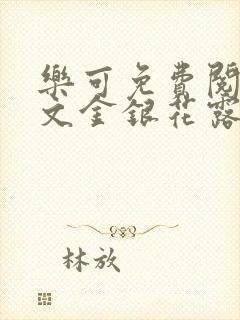 樂可免費閱
文全銀花露
林放